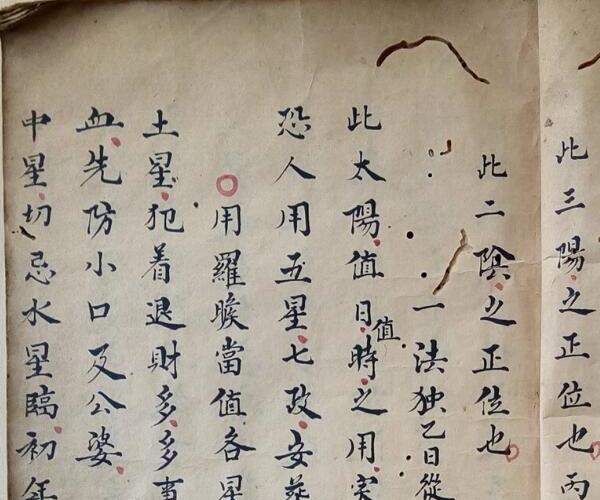 此三陽之正位也丙
此二陰之正位也
一法独乙日從
此太陽值日值時之用
恐人用五星七政安
○用羅睺當值各星
土星犯着退財多多事
血先防小口及公婆
中星切忌水星臨初年